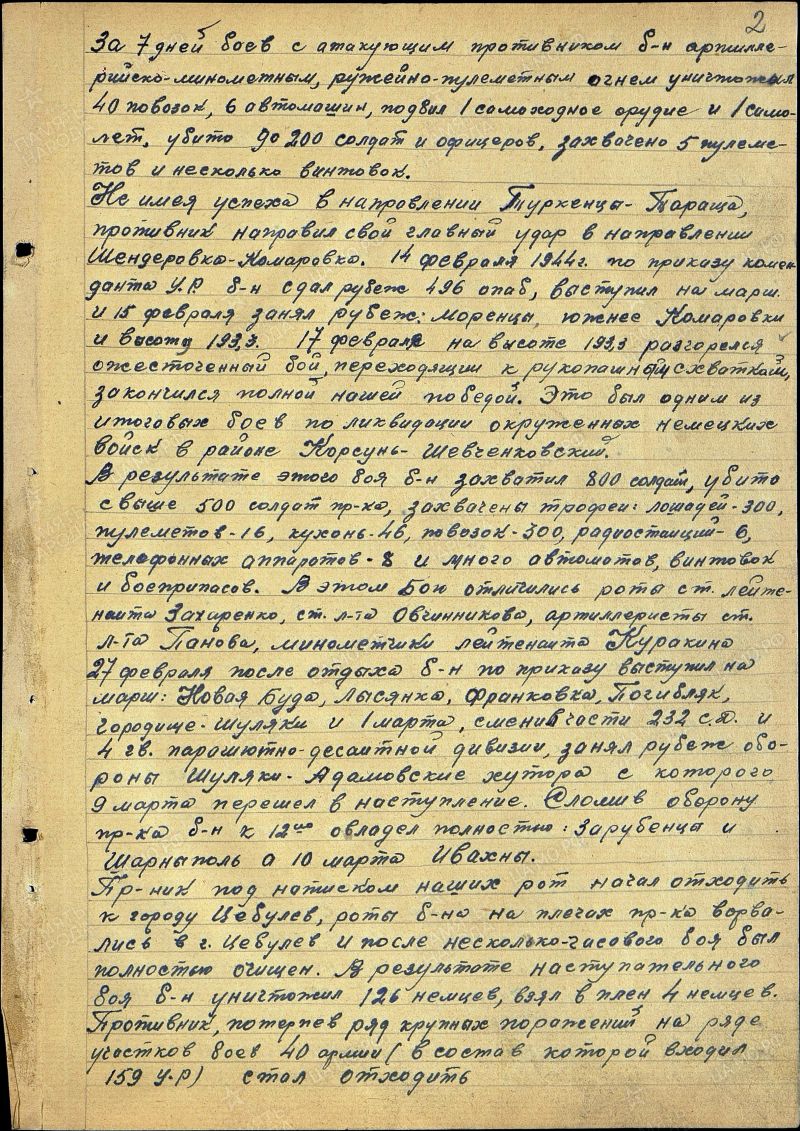 2
За 7 дней боев с атакующим противником б-н артилле-
рийско-минометным, ружейно-пулеметным огнем уничтожил
40 повозок, 6 автомашин, подбил 1 самоходное орудие и 1 само-
лет, убито до 200 солдат и офицеров, захвачено 5 пулеме-
тов и несколько винтовок.
Не имея успеха в направлении Туркенцы- Тараща,
противник направил свой главный удар в направлении
Шендеровка-Комаровка. 14 февраля 1944г. по приказу комен-
данта У.Р б-н сдал рубеж 496 опаб, выступил на марш.
и 15 февраля занял рубеж: Моренцы, южнее Комаровки
и высоту 193,3. 17 февраля на высоте 193,3 разгорелся
ожесточенный бой, переходящий к рукопашным схваткам,
закончился полной нашей победой. Это был одним из
итоговых боев по ликвидации окруженных немецких
войск в районе Корсунь- Шевченковский.
В результате этого боя б-н захватил 800 солдат, убито
свыше 500 солдат пр-ка, захвачены трофеи: лошадей - 300,
пулеметов - 16, кухонь - 46, повозок - 300, радиостанций - 6,
телефонных аппаротов - 8 и много автомотов, винтовок
и боеприпасов. В этом Бою отличились роты ст. лейте-
нанта Захаренко, ст. л-та Овчинникова, артиллеристы ст.
л-та Панова, минометчики лейтенанта Куракина
27 февраля после отдыха б-н по приказу выступил на
марш: Новая Буда, Лысянка, Франковка, Погибляк,
Городище-Шуляки и 1 марта, сменив части 232 с.д. и
4 гв. парашютно-десантной дивизии, занял рубеж обо-
роны Шуляки - Адамовские хутора с которого
9 марта перешел в наступление. Сломив оборону
пр-ка б-н к 12 00 овладел полностью: Зарубенцы и
Шарныполь а 10 марта Ивахны.
Пр-ник под натиском наших рот начал отходить
к городу Цебулев, роты б-на на плечах пр-ка ворва-
лись в г. Цебулев и после несколько-часового боя был
полностью очищен. В результате наступательного
боя б-н уничтожил 126 немцев, взял в плен 4 немцев.
Противник, потерпев ряд крупных поражений на ряде
участков боев 40 армии ( в состав которой входил
159 У.Р) стал отходить